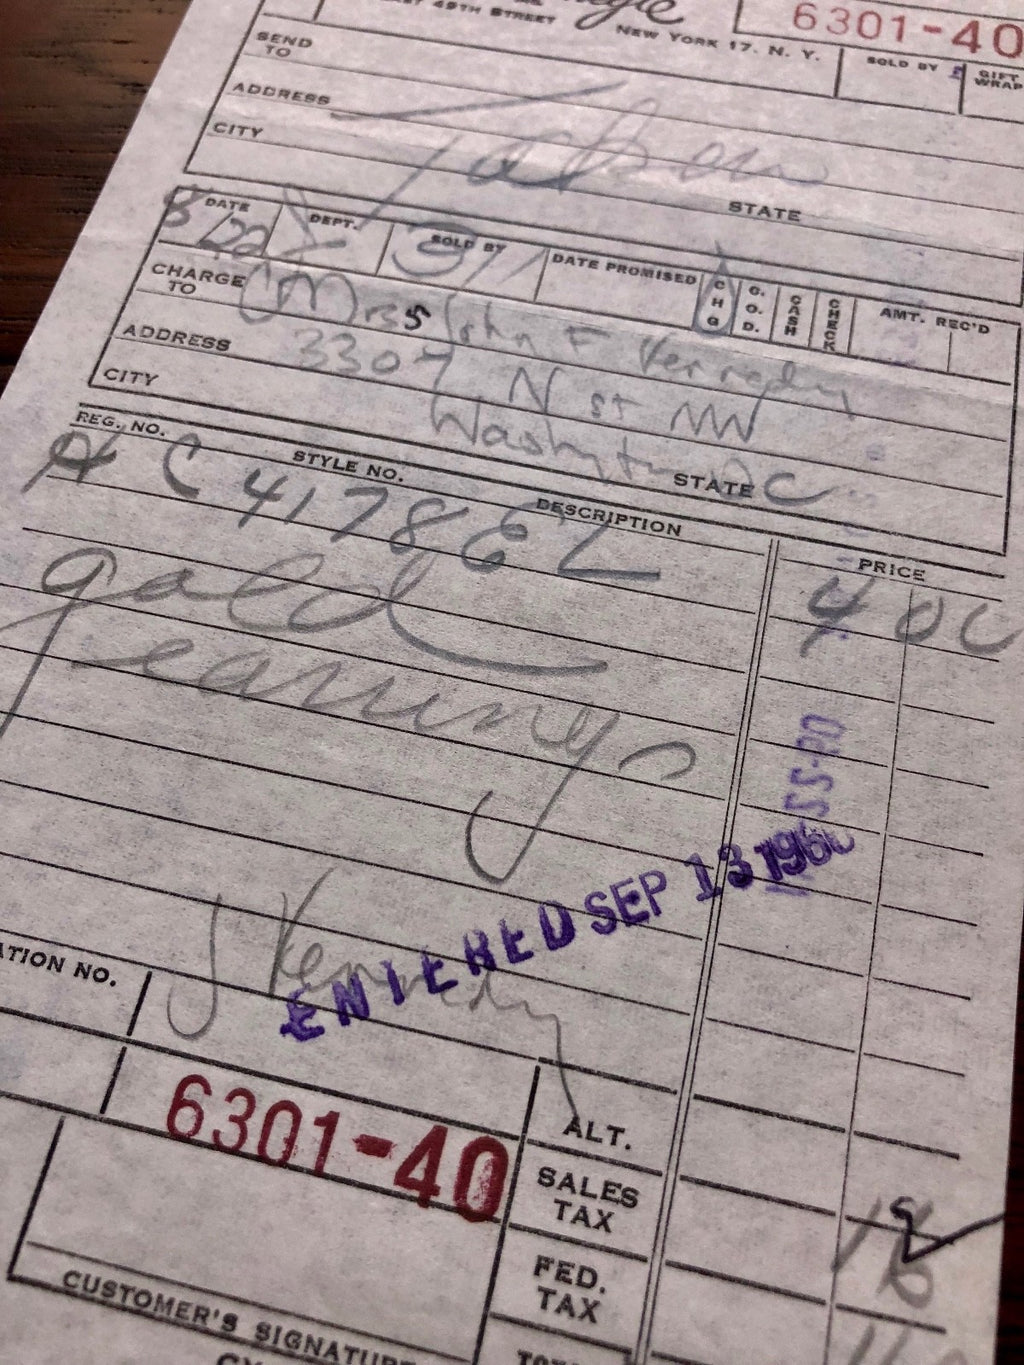 EAST 49TH STREET
NEW YORK 17. N. Y.
6301-40
SOLD BY
GIFT WRAP
SEND TO
ADDRESS
CITY
STATE
Taken
DATE
DEPT.
SOLD BY
DATE PROMISED
CHG
C.O.D.
CASH
CHECK
AMT. REC'D
8/22
311
CHARGE TO
Mrs John F Kennedy
ADDRESS
3307 N st NW
CITY
Washington DC
STATE
REG. NO.
STYLE NO.
DESCRIPTION
PRICE
C 4178 E
4 00
gold
earrings
ENTERED SEP 13 1960
J Kennedy
ATION NO.
6301-40
ALT.
SALES TAX
FED. TAX
CUSTOMER'S SIGNATURE